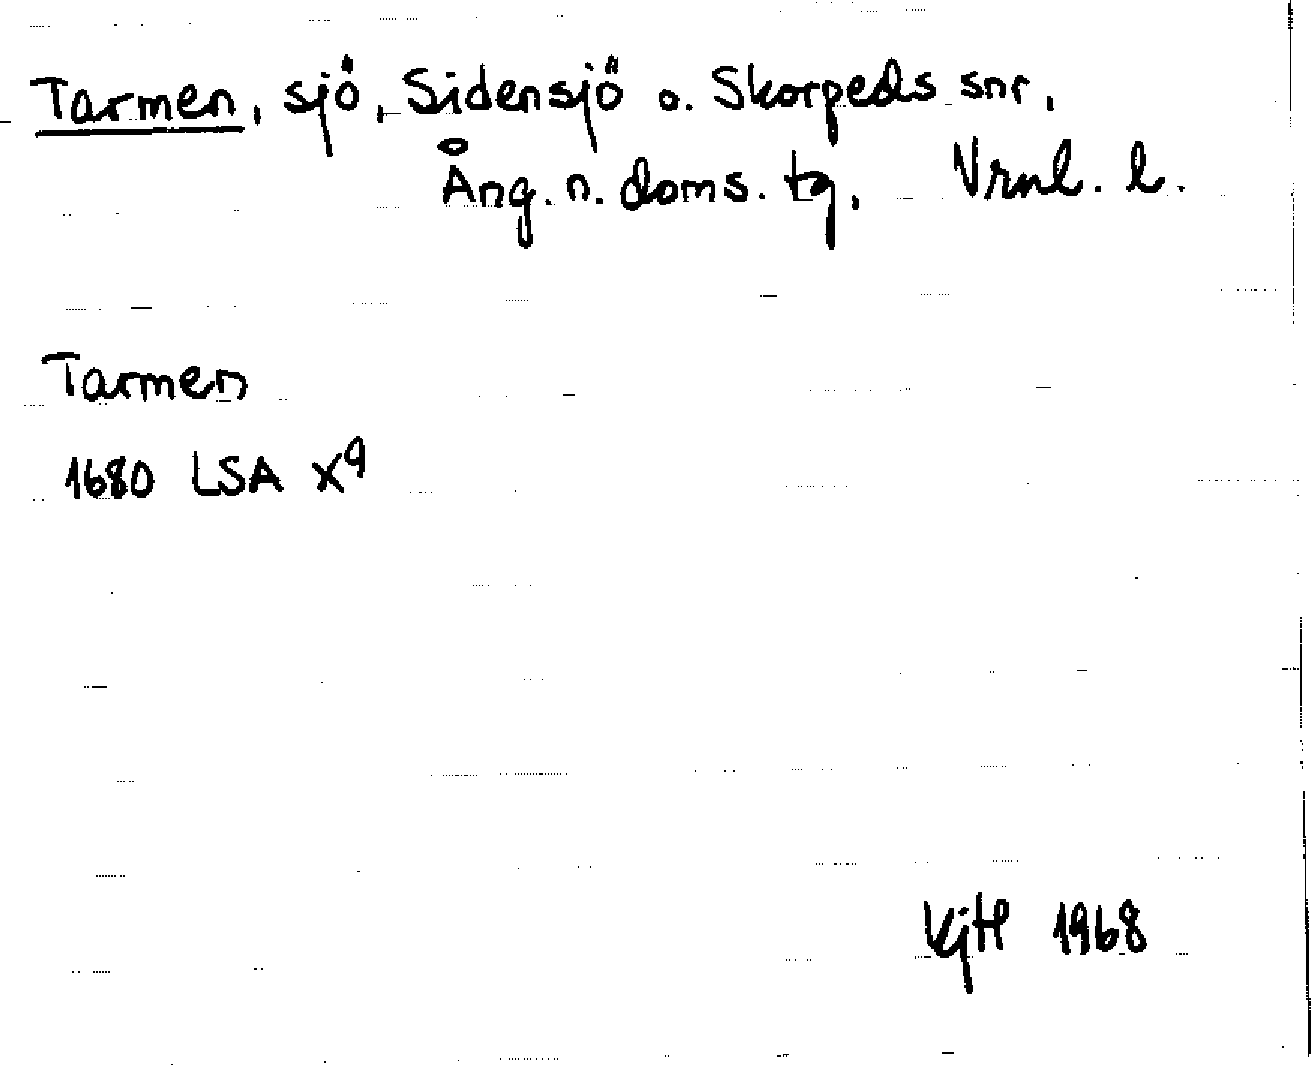 Tarmen, sjö, Sidensjö o. Skorpeds snr,
Ång. n. doms. tg, Vrnl. l.
Tarmen
1680 LSA X9
1968